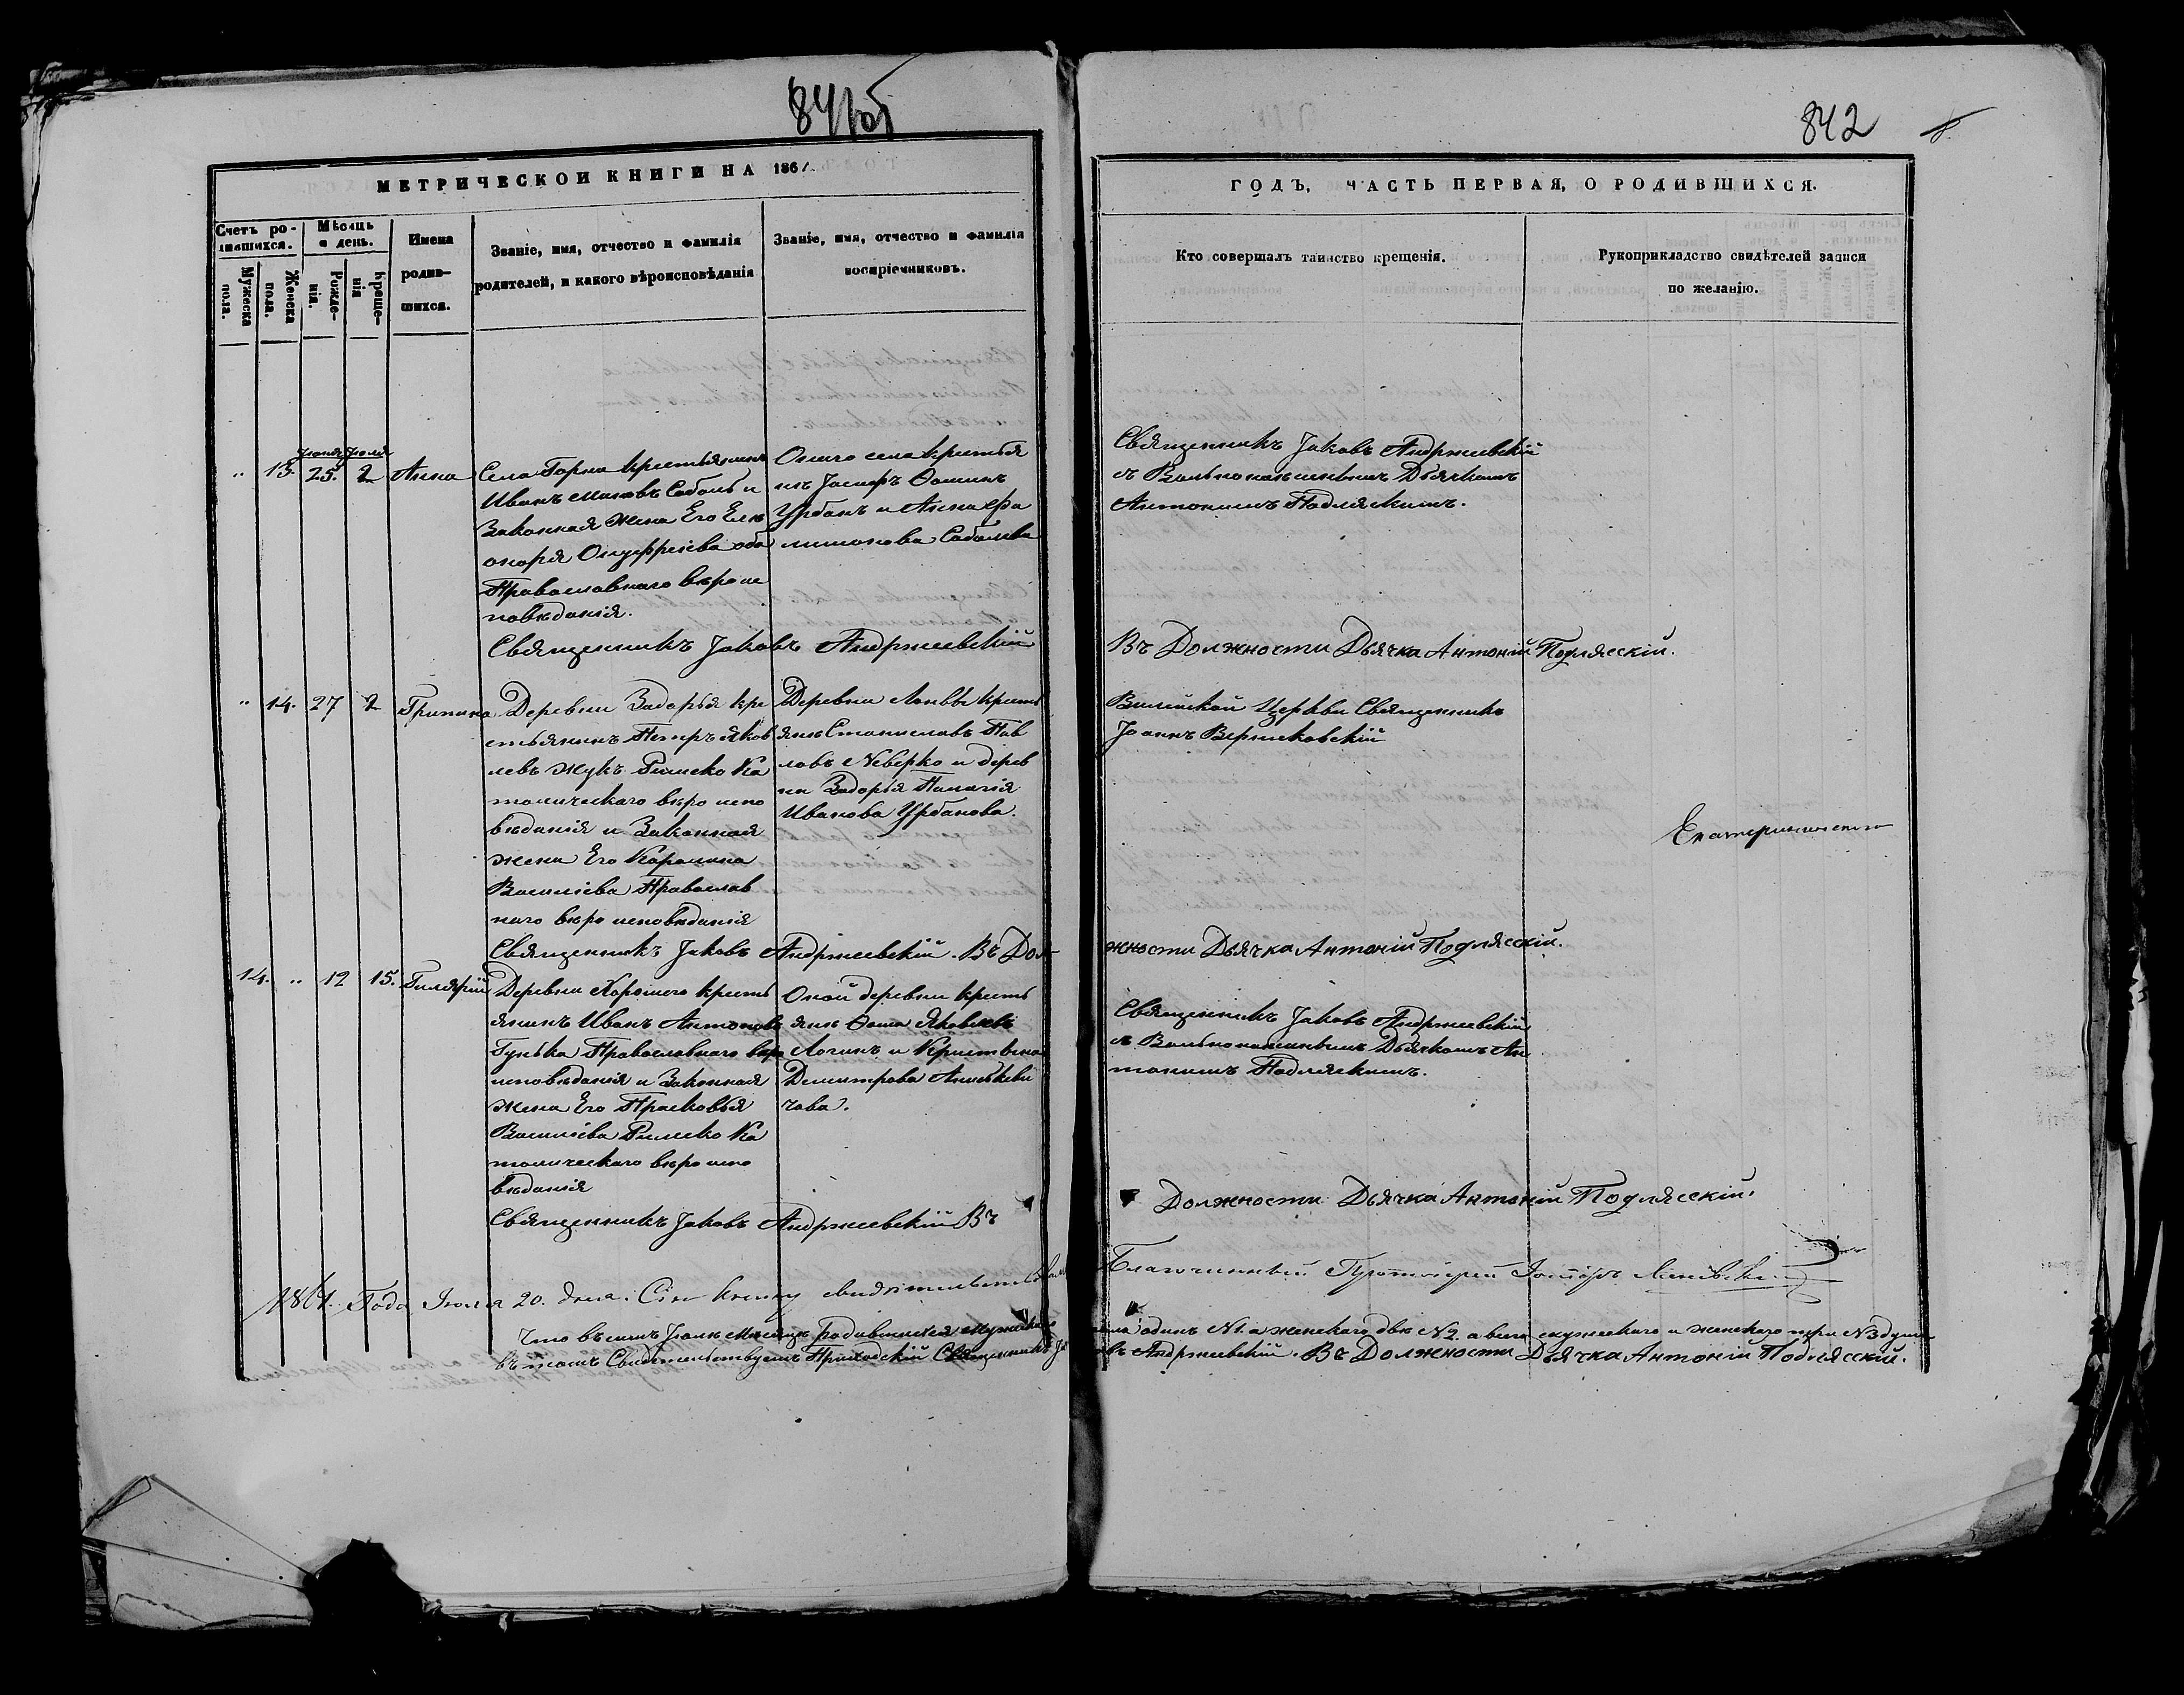 841об
842
МЕТРИЧЕСКОЙ КНИГИ НА 1861.
ГОДЪ, ЧАСТЬ ПЕРВАЯ, О РОДИВШИХСЯ.
Счетъ родившихся.
Мужеска пола.
Женска пола.
Мѣсяцъ и день.
Рожденія.
Крещенія
Имена родившихся.
Званіе, имя, отчество и фамилія
родителей, и какого вѣроисповѣданія
Званіе, имя, отчество и фамилія
воспріемниковъ.
Кто совершалъ таинство крещенія.
Рукоприкладство свидѣтелей записи
по желанію.
Іюня Іюля
" 13. 25. 2 Анна
Села Горна крестьянинъ
Иванъ Соболь и
Законная жена Его Еле
онора Онуфріева оба
Православнаго вѣроис
повѣданія.
Онаго села крестья
нъ Іосифъ Ѳоминъ
Урбанъ и Анна Фи
лимонова Соболева
Священникъ Іаковъ Андржеевскій
съ Вольнонаемнымъ Дьячкомъ
Антоніемъ Подляскимъ.
Священникъ Іаковъ Андржеевскій
Въ Должности Дьячка Антоній Подляскій.
" 14. 27 2 Грипина
Деревни Задорья кре
стьянинъ Петръ Яков
левъ Жукъ Римско Ка
толическаго вѣро испо
вѣданія и Законная
жена Его Каролина
Василіева Православ
наго вѣро исповѣданія
Деревни крест
янъ Станиславъ Пав
ловъ Неверко и дерев
ни Задорья Палагія
Иванова Урбанова.
Вилейской Церкви Священникъ
Іоаннъ Вернаковскій
Священникъ Іаковъ Андржеевскій. Въ Дол
жности Дьячка Антоній Подляскій.
14. " 12 15. Гилярій
Деревни Хорошего крест
янинъ Иванъ Антоновъ
Гунька Православнаго вѣро
исповѣданія и Законная
жена Его Прасковья
Василіева Римско Ка
толическаго вѣро испо
вѣданія
Оной деревни крест
янъ Ѳома Яковлевъ
Логинъ и Кристина
Димитрова
чова.
Священникъ Іаковъ Андржеевскій
съ Вольнонаемнымъ Дьячкомъ Ан
тоніемъ Подляскимъ.
Священникъ Іаковъ Андржеевскій Въ
Должности Дьячка Антоній Подляскій.
1861. Года Іюля 20. дня. Сію книгу свидѣтельствовалъ
Благочинный Протоіерей
Что въ семъ Іюлѣ Мѣсяцѣ Родившихся мужескаго
пола одинъ №1. а женскаго двѣ №2. а всего мужескаго и женскаго три №3 души
въ томъ Свидѣтельствуемъ Приходскій Священникъ Іа
ковъ Андржеевскій. Въ Должности Дьячка Антоній Подляскій.